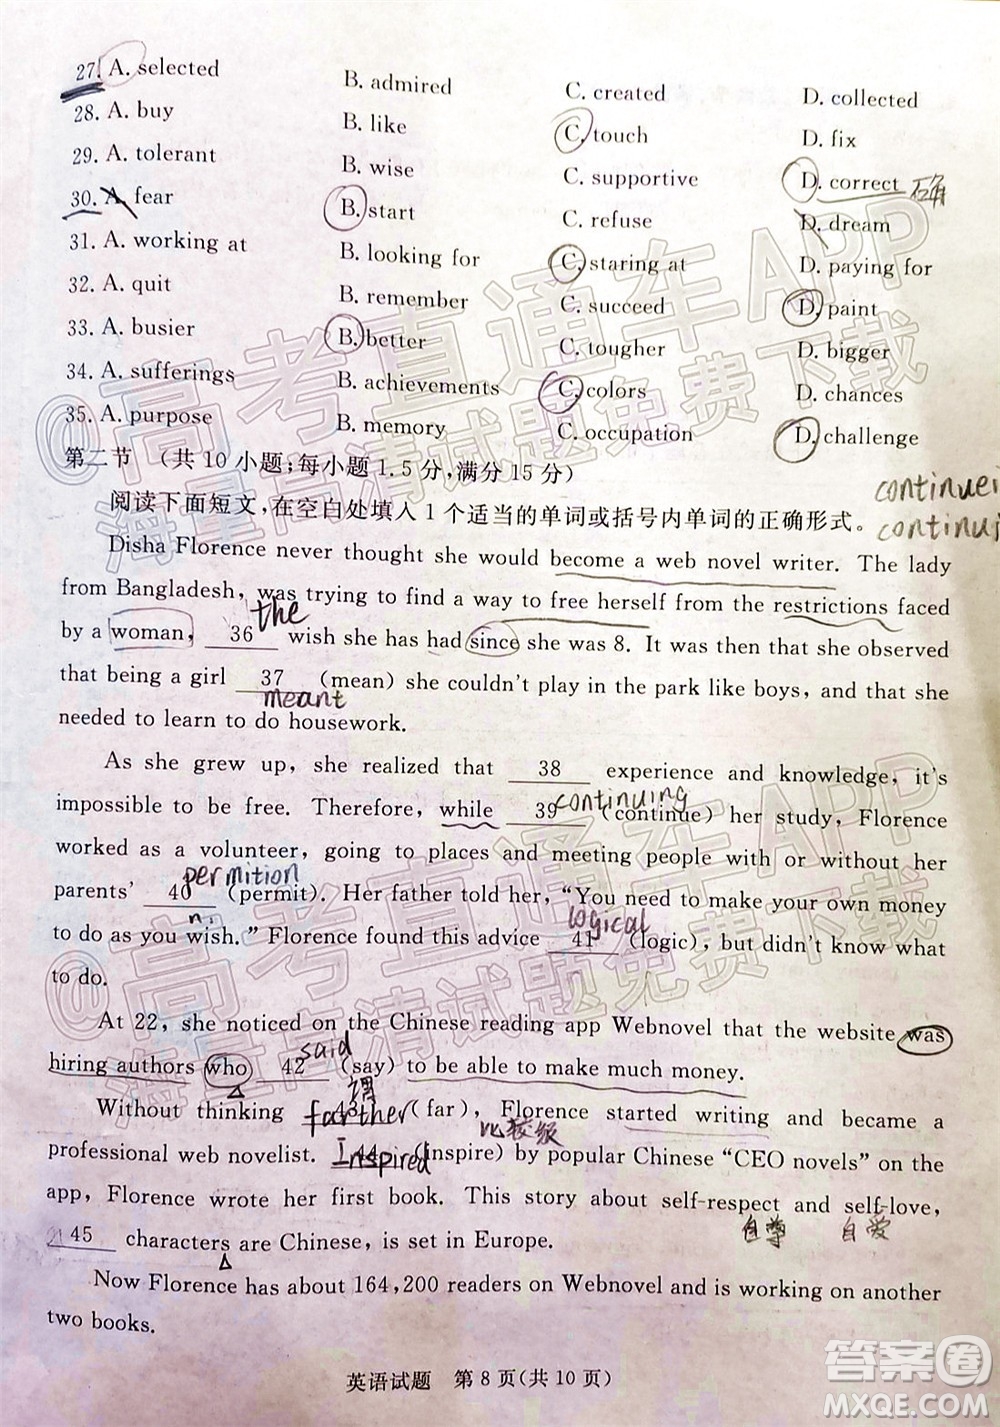 27. A. selected B. admired C. created D. collected
28. A. buy B. like C. touch D. fix
29. A. tolerant B. wise C. supportive D. correct 确
30. A. fear B. start C. refuse D. dream
31. A. working at B. looking for C. staring at D. paying for
32. A. quit B. remember C. succeed D. paint
33. A. busier B. better C. tougher D. bigger
34. A. sufferings B. achievements C. colors D. chances
35. A. purpose B. memory C. occupation D. challenge
第二节 (共10小题;每小题1.5分,满分15分)
阅读下面短文,在空白处填入1个适当的单词或括号内单词的正确形式。
Disha Florence never thought she would become a web novel writer. The lady
from Bangladesh, was trying to find a way to free herself from the restrictions faced
the
by a woman, 36 wish she has had since she was 8. It was then that she observed
that being a girl 37 (mean) she couldn't play in the park like boys, and that she
meant
needed to learn to do housework.
As she grew up, she realized that 38 experience and knowledge, it's
continuing
impossible to be free. Therefore, while 39 (continue) her study, Florence
worked as a volunteer, going to places and meeting people with or without her
permition
parents' 40 (permit). Her father told her, "You need to make your own money
n. logical
to do as you wish." Florence found this advice 41 (logic), but didn't know what
to do.
At 22, she noticed on the Chinese reading app Webnovel that the website was
said
hiring authors who 42 (say) to be able to make much money.
谓
Without thinking 43 (far), Florence started writing and became a
farther 比较级
professional web novelist. 44 (inspire) by popular Chinese "CEO novels" on the
Inspired
app, Florence wrote her first book. This story about self-respect and self-love,
自尊 自爱
45 characters are Chinese, is set in Europe.
Now Florence has about 164,200 readers on Webnovel and is working on another
two books.
英语试题 第8页(共10页)
@高考直通车APP
海量高清试题免费下载
@高考直通车APP
海量高清试题免费下载
答案圈
MXQE.COM